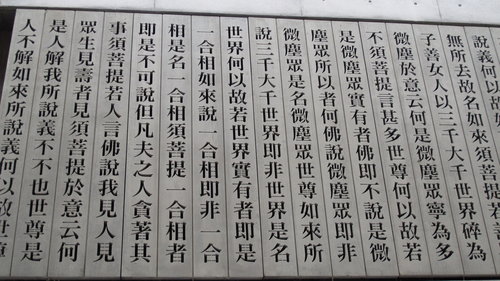 說義何以故如來
無所去故名如來須菩
子善女人以三千大千世界碎為
微塵於意云何是微塵眾寧為多
不須菩提言甚多世尊何以故若
是微塵眾實有者佛即不說是微
塵眾所以者何佛說微塵眾即非
微塵眾是名微塵眾世尊如來所
說三千大千世界即非世界是名
世界何以故若世界實有者即是
一合相如來說一合相即非一合
相是名一合相須菩提一合相者
即是不可說但凡夫之人貪著其
事須菩提若人言佛說我見人見
眾生見壽者見須菩提於意云何
是人解我所說義不不也世尊是
人不解如來所說義何以故世尊